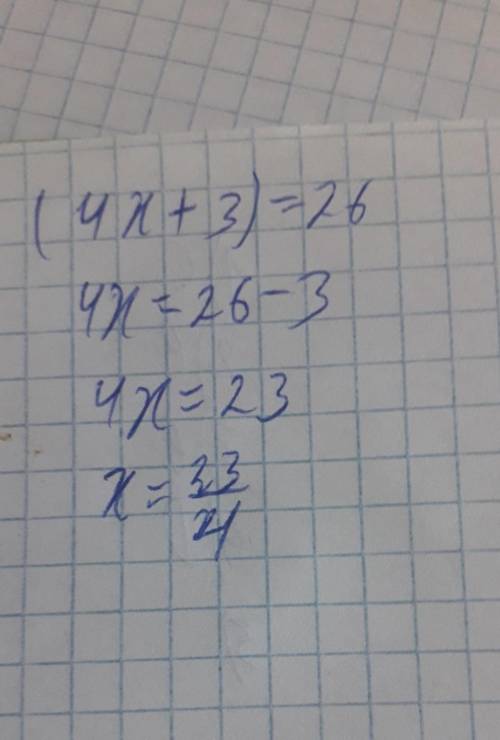 (4x+3)=26
4x=26-3
4x=23
x=33/4